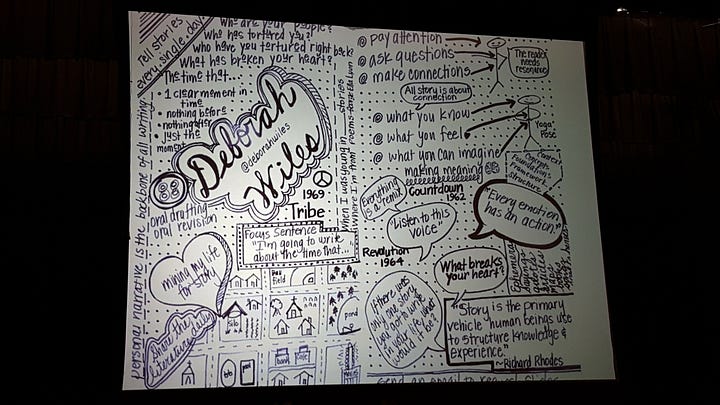 Tell stories
every single day
Who are your people?
Who has tortured you?
who have you tortured right back?
What has broken your heart?
The time that...
• 1 clear moment in
time
• nothing before
• nothing after
• just the
moment
Deborah
Wiles
@deborahwiles
personal narrative is the backbone of all writing
oral drafting
oral revision
1969
Tribe
Focus Sentence
"I'm going to write
about the time that..."
mining my life
for story
Share the
field
pond
When I was young in
Where I'm from
poems
stories
@ pay attention
@ ask questions
@ make connections
The reader
needs
resonance
All story is about
connection
@ what you know
@ what you feel
@ what you can imagine
making meaning
"Yoga"
Pose
Context
Concepts
Foundations
Framework
Structure
Everything
is a remix
Countdown
1962
"Listen to this
voice"
Revolution
1964
"Every emotion
has an action"
What breaks
your heart?
"If there was
only one story
you could write
in your life, what
would it be"
"Story is the primary
vehicle human beings use
to structure knowledge &
experience."
~Richard Rhodes
send an email to request slides